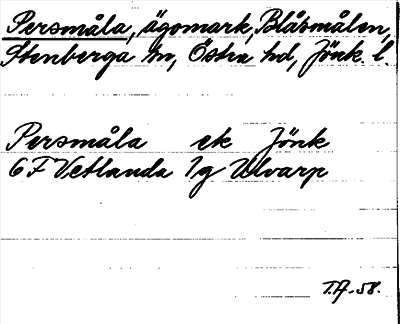 Persmåla, ägomark, Blåsmålen,
Stenberga sn, Östra hd, Jönk. l.
Persmåla ek Jönk
6F Vetlanda 1g Ulvarp
T.A. -58.